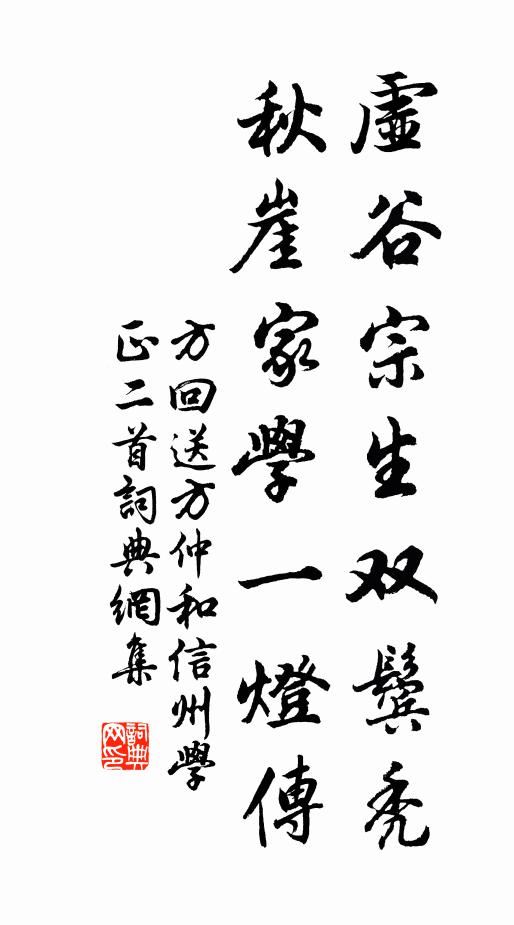 虛谷宗生双鬓禿
秋崖家學一燈傳
方回送方仲和信州學
正二首詞典網集
詞典网印